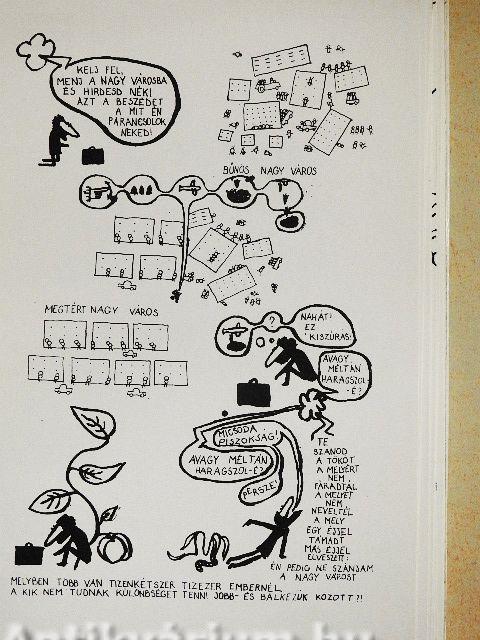 KELJ FEL,
MENJ A NAGY VÁROSBA
ÉS HIRDESD NÉKI
AZT A BESZÉDET
A MIT ÉN
PARANCSOLOK
NEKED!
BŰNÖS NAGY VÁROS
MEGTÉRT NAGY VÁROS
?
NAHÁT!
EZ
KISZÚRÁS!
AVAGY
MÉLTÁN
HARAGSZOL-
-É?
MICSODA
PISZOKSÁG!
AVAGY MÉLTÁN
HARAGSZOL-É?
PERSZE!
TE
SZÁNOD
A TÖKÖT
A MELYÉRT
NEM
FÁRADTÁL
A MELYET
NEM
NEVELTÉL
A MELY
EGY ÉJJEL
TÁMADT
MÁS ÉJJEL
ELVESZETT:
ÉN PEDIG NE SZÁNJAM
A NAGY VÁROST
MELYBEN TÖBB VAN TIZENKÉTSZER TÍZEZER EMBERNÉL,
A KIK NEM TUDNAK KÜLÖNBSÉGET TENNI JOBB- ÉS BALKEZÜK KÖZÖTT?!
Antikvarium.hu